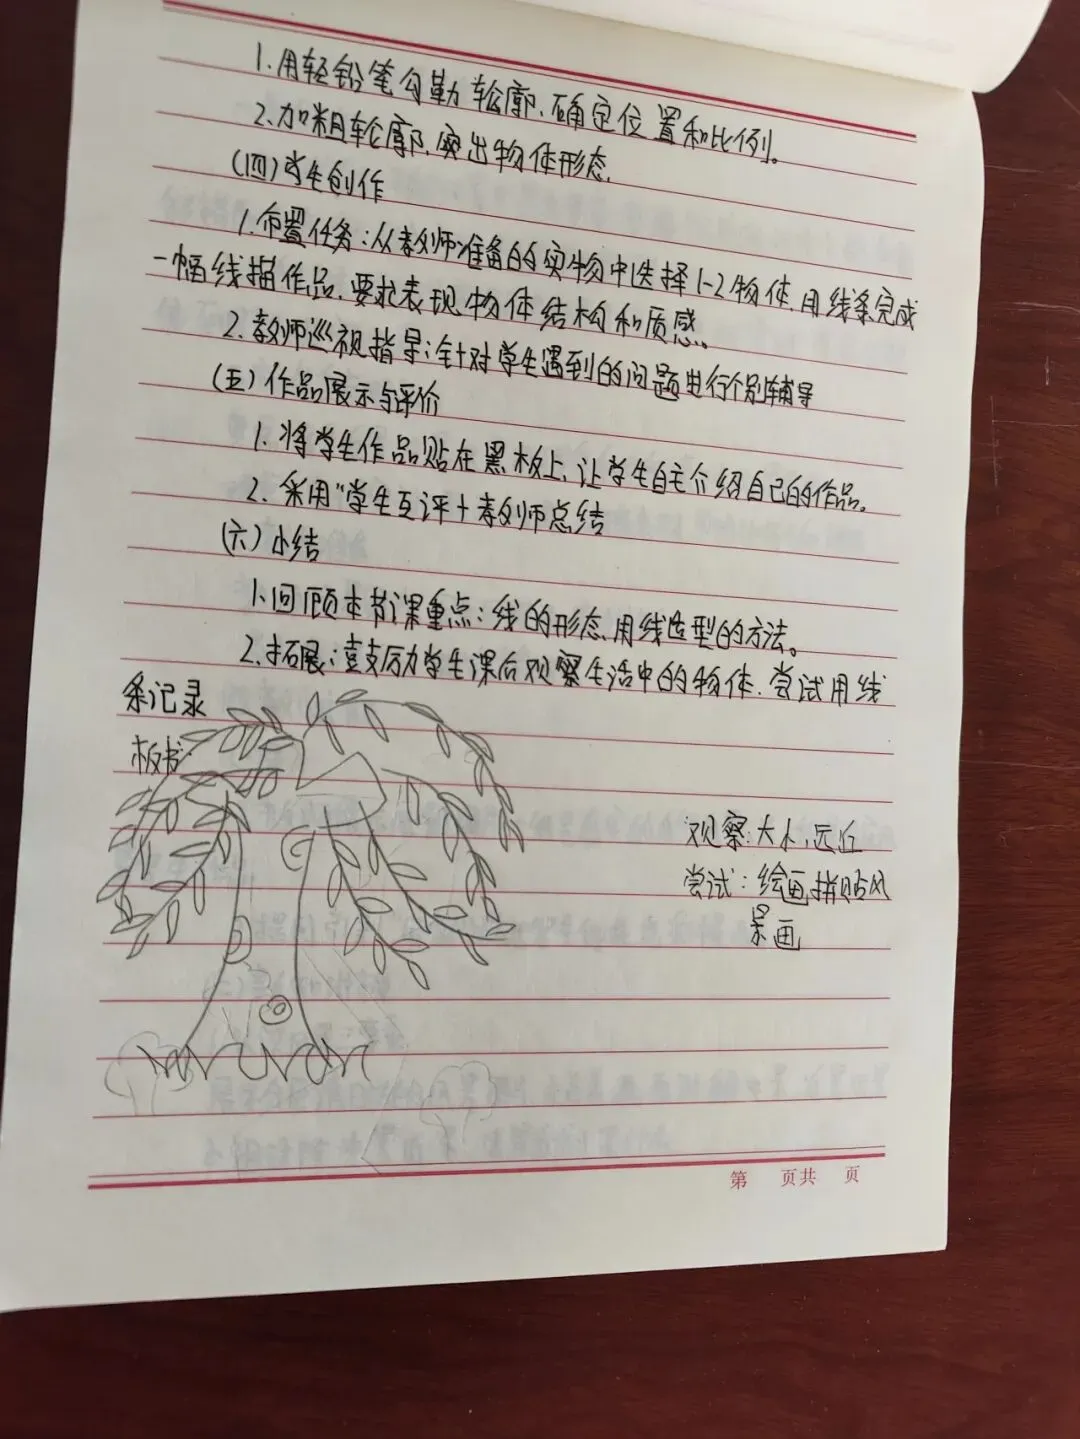 1.用轻铅笔勾勒轮廓、确定位置和比例。
2.加粗轮廓,突出物体形态.
(四)学生创作
1.布置任务:从教师准备的实物中选择1-2物体,用线条完成
一幅线描作品,要求表现物体结构和质感。
2.教师巡视指导:针对学生遇到的问题进行个别辅导
(五)作品展示与评价
1.将学生作品贴在黑板上,让学生自主介绍自己的作品。
2.采用"学生互评+教师总结
(六)小结
1.回顾本节课重点:线的形态,用线造型的方法。
2.拓展:鼓励学生课后观察生活中的物体,尝试用线
条记录
板书:
观察:大小,远近
尝试:绘画,拼贴风
景画
第 页共 页